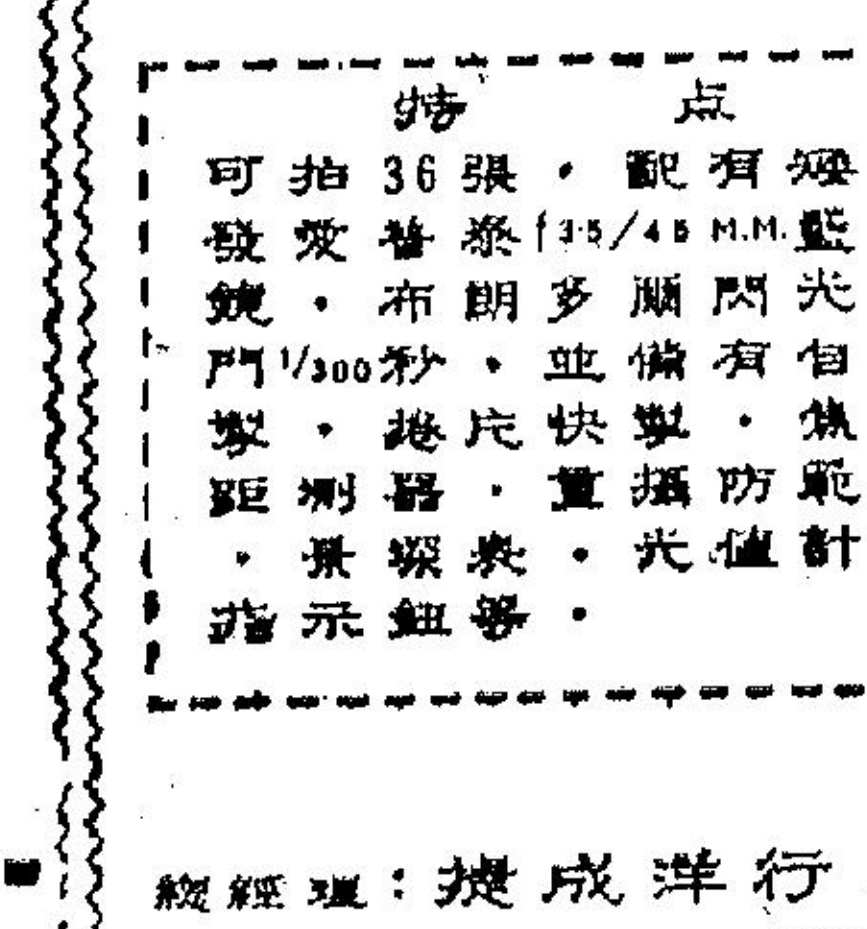 特 点
可拍36張・配有
發 普泰 f3·5/45 M.M. 藍
鏡・布朗多順閃光
門1/300秒・並備有自
掣・捲片快掣・焦
距測器・重攝防範
・景深表・光值計
指示鈕等・
總經理：捷成洋行